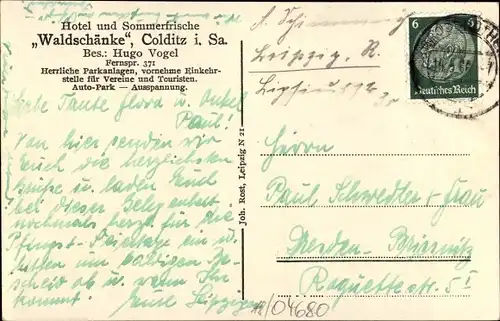 Hotel und Sommerfrische
„Waldschänke", Colditz i. Sa.
Bes.: Hugo Vogel
Fernspr. 371
Herrliche Parkanlagen, vornehme Einkehr-
stelle für Vereine und Touristen.
Auto-Park — Ausspannung.
Liebe Tante Flora u. Onkel
Paul!
Von hier senden wir
Euch die herzlichsten
Grüße u. laden Euch
bei dieser Gelegenheit
nochmals herzl. für die
Pfingst-Feiertage ein u.
bitten um baldigen Be-
scheid ob u. wann Ihr
kommt. Eure Leipziger
Joh. Rost, Leipzig N 21
Leipzig. R.
6 6
Deutsches Reich
Herrn
Paul Schwedler & Frau
Dresden-
str. 51
04680